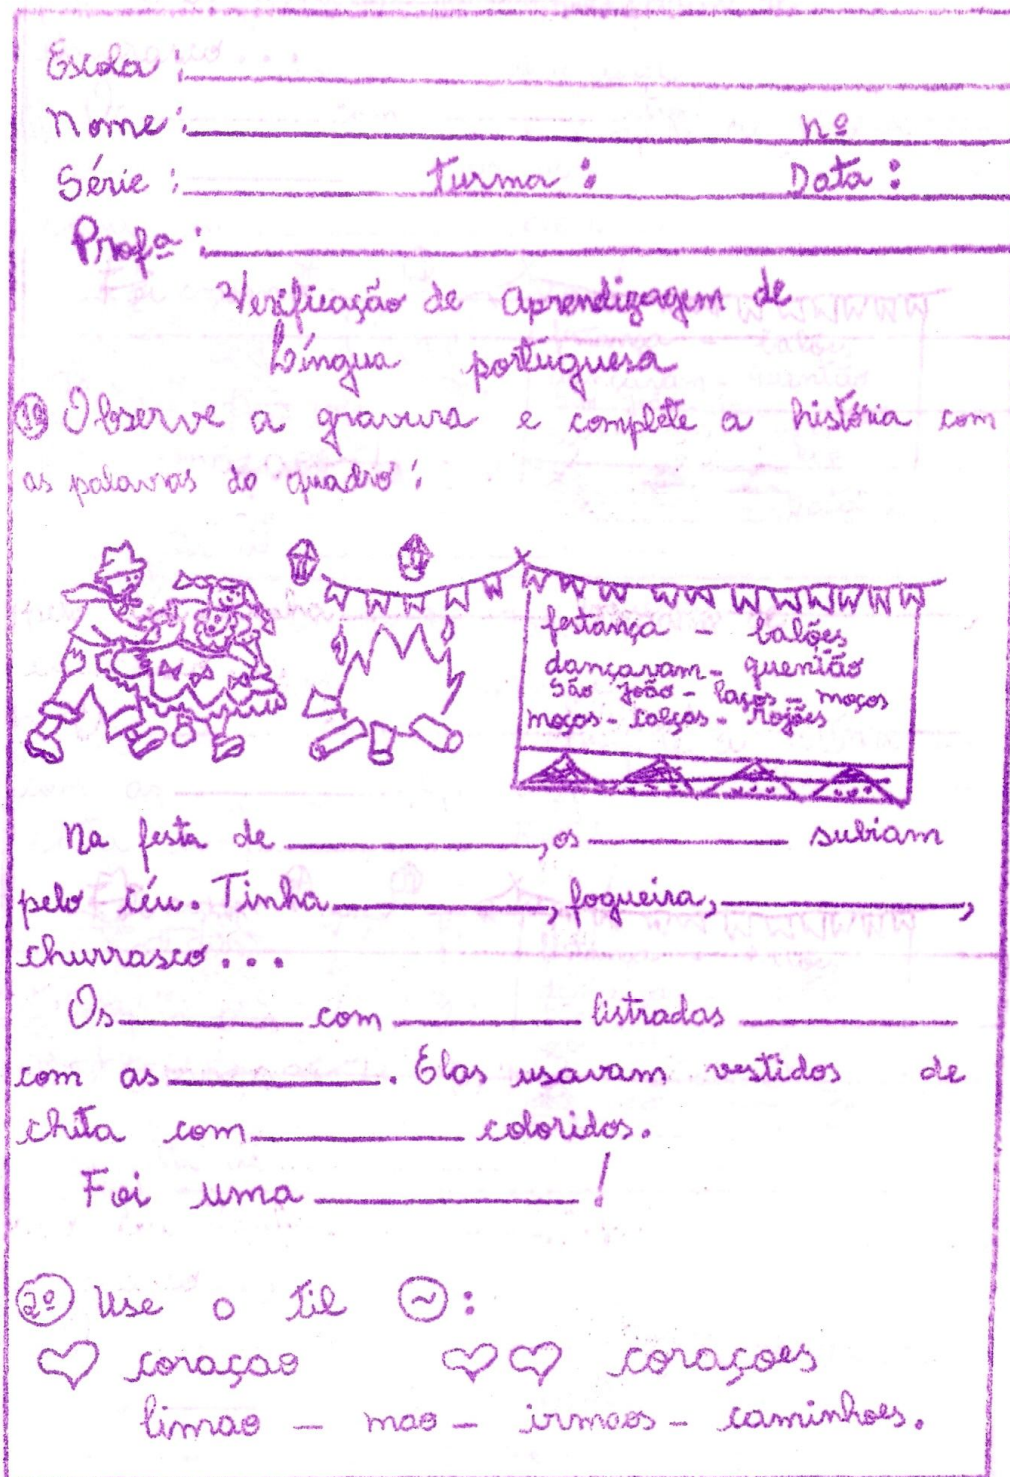 Escola:
Nome: nº
Série: turma: Data:
Profª:
Verificação de Aprendizagem de
Língua portuguesa
1º Observe a gravura e complete a história com
as palavras do quadro:
festança - balões
dançavam - quentão
São João - laços - moços
moças - calças - rojões
Na festa de ____________, os __________ subiam
pelo céu. Tinha ___________, fogueira, ____________,
churrasco...
Os _________ com _________ listradas ___________
com as ___________. Elas usavam vestidos de
chita com ___________ coloridos.
Foi uma _____________!
2º Use o til (~):
coraçao coraçoes
limao - mao - irmaos - caminhoes.